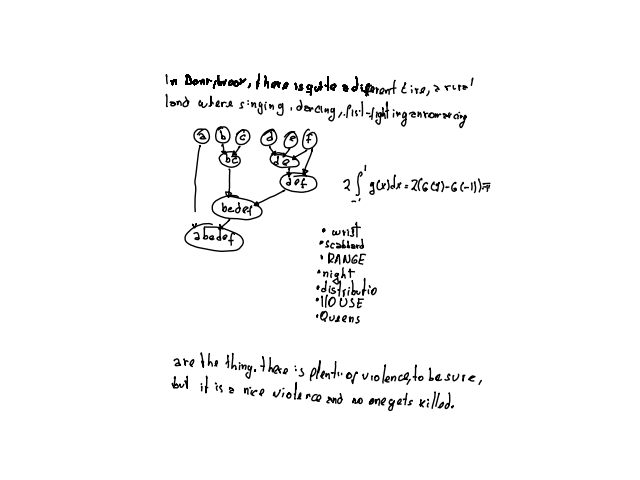 In Donnybrook, there is quite a different Eire, a rural
land where singing, dancing, fist-fighting and romancing
a b c d e f
bc de
def
bcdef
abcdef
2 ∫_{-1}^{1} g(x)dx = 2(G(1)-G(-1)) = π
• wrist
• scabbard
• RANGE
• night
• distributio
• HOUSE
• Queens
are the thing. There is plenty of violence, to be sure,
but it is a nice violence and no one gets killed.